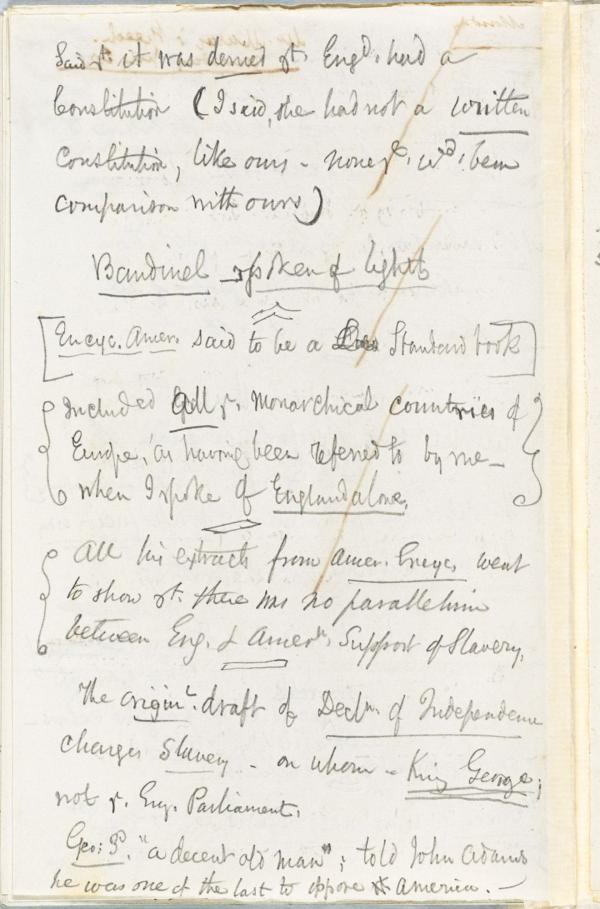 Said yt it was denied yt Engd. had a
Constitution (I said, she had not a written
Constitution, like ours - none yt. wd. bear
comparison with ours)
Bandinel spoken of lightly
[Encyc. Amer. said to be a Standard book]
{Included all ye. monarchical countries of }
Europe, as having been referred to by me -
when I spoke of England alone.
{ All his extracts from Amer. Encyc. went
to show yt. there was no parallelism
between Eng. & Amern. Support of Slavery.
The originl. draft of Decln. of Independence
charges Slavery - on whom - King George;
not ye. Eng. Parliament.
Geo: 3d. "a decent old man"; told John Adams
he was one of the last to oppose America. -